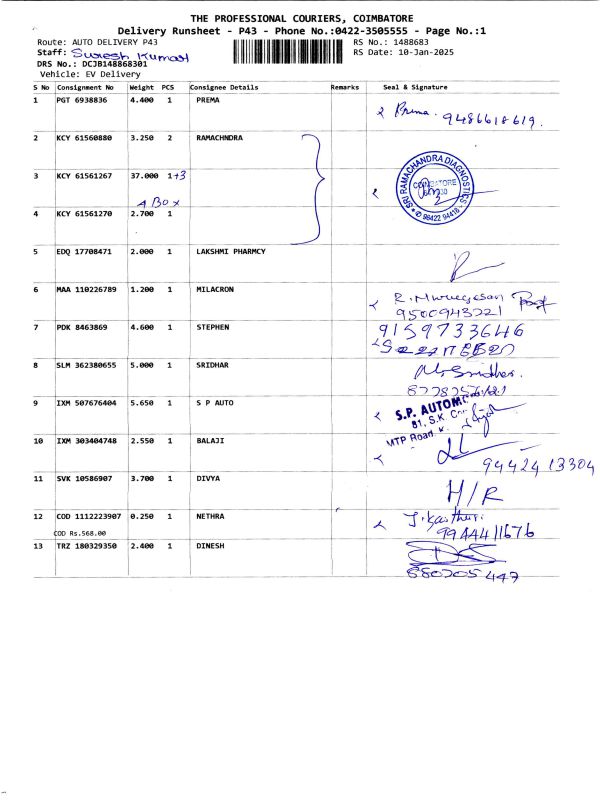 THE PROFESSIONAL COURIERS, COIMBATORE
Delivery Runsheet - P43 - Phone No.:0422-3505555 - Page No.:1
Route: AUTO DELIVERY P43 RS No.: 1488683
Staff: Suresh Kumar RS Date: 10-Jan-2025
DRS No.: DCJB148868301
Vehicle: EV Delivery
S No Consignment No Weight PCS Consignee Details Remarks Seal & Signature
1 PGT 6938836 4.400 1 PREMA Prema. 9486618619.
2 KCY 61560880 3.250 2 RAMACHNDRA
SRI RAMACHANDRA DIAGNOSTICS
COIMBATORE
98422 94418
3 KCY 61561267 37.000 1+3
4 BOX
4 KCY 61561270 2.700 1
5 EDQ 17708471 2.000 1 LAKSHMI PHARMCY
6 MAA 110226789 1.200 1 MILACRON R. Murugesan
9500943221
7 PDK 8463869 4.600 1 STEPHEN 9159733646
8 SLM 362380655 5.000 1 SRIDHAR Sridhar.
9 IXM 507676404 5.650 1 S P AUTO S.P. AUTOM
81, S.K. Co
MTP Road,
10 IXM 303404748 2.550 1 BALAJI
9442413304
11 SVK 10586907 3.700 1 DIVYA H/R
12 COD 1112223907 0.250 1 NETHRA
COD Rs.568.00 9944411676
13 TRZ 180329350 2.400 1 DINESH